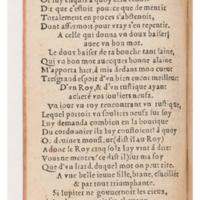 Di ce que c'estoit, pource que de mentir
Totalement en proces s'abstenoit,
Dont assermoit pour vray s'en repentir.
A celle qui donna vn doux baiser
auec vn bon mot.
Le doux baiser de ta bouche tant saine,
Qui va bon mot auecques bonne alaine
M'apporta hier, à mis dedans mon cueur
D'vn Roy, & d'vn rustique ayant
acheté vns souliers neufs.
Vn iour vn roy rencontrant vn rustique,
Lequel portoit vns souliers neufs sur soy
Luy demanda combien en la boutique
Du cordonnier ils luy coustoient à quoy
O, deuinez monsieur, (dist il au Roy)
Adonc le Roy cinq solz luy vint à dire:
Vous me mentez (ce dist il) sur ma foy
Que d'vn liard, duquel mot on print rire.
A vne belle ieune fille, blanc, estoillée
& par tout triomphante.
Si Iupiter ne gouuernoit les cieux,